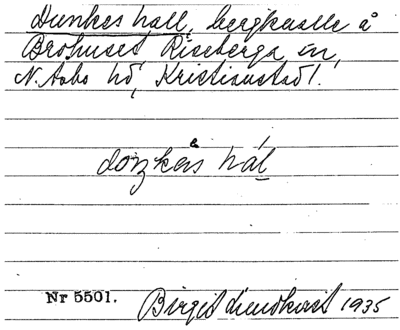 Dunkes hall, bergknalle å
Brohuset Riseberga sn,
N. Åsbo hd, Kristianstad l.
hál
Nr 5501.
Birgit Lindkvist 1935